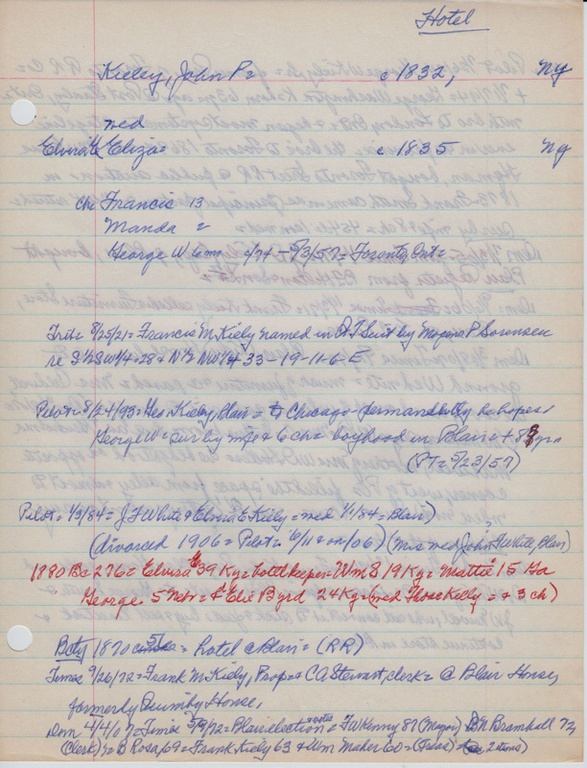 Hotel
Kieley, John P = c 1832, NY
med
Elvira E Eliza = c 1835 NY
ch Francis 13
Manda =
George W 6 mo 4/74 - 5/3/57 = Toronto, Ont =
Trib = 8/25/21 = Francis M. Kiely named in QT Suit by Mogens P Sorensen
re S½ SW¼ - 28 & N½ NW¼ 33-19-11-6-E
Pilot = 8/24/93 = Geo Kieley, Blair = to Chicago - permanently he hopes
George W = sur by mrs & 6 ch = boyhood in Blair = + 83 yrs
(PT = 5/23/57)
Pilot = 1/3/84 = J F White & Elvira E Kiely = med 1/1/84 = Blair)
(divorced 1906 = Pilot = on /06) (Mrs med John F White, Blair)
1880 Bl = 276 = Elvira E 39 Ky = hotelkeeper = Wm S 19 Ky = Mattie 15 Ga
George 5 Nebr = & Elie Byrd 24 Ky = (med Thos Kelly = & 3 ch)
1870 = hotel @ Blair = (RR)
Times 9/26/72 = Frank M Kiely, Prop = C A Stewart, clerk = @ Blair House,
formerly Quimby House,
Dem 4/4/07 = Times = Blair election = votes = F W Kenny 87 (Mayor) D N Bramhall 72
(Clerk) = B Rosa, 69 = Frank Kiely 63 & Wm Maher 60 = 2 items)